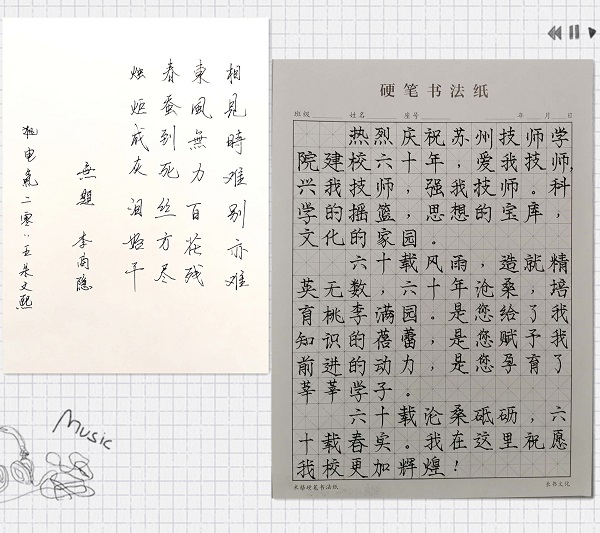 相見時难别亦难
東風無力百花残
春蚕到死丝方尽
烛炬成灰泪始干
無題 李商隐
机电氣二零
硬笔书法纸
班级 姓名 座号 年 月 日
热烈庆祝苏州技师学
院建校六十年，爱我技师，
兴我技师，强我技师。科
学的摇篮，思想的宝库，
文化的家园。
六十载风雨，造就精
英无数，六十年沧桑，培
育桃李满园。是您给了我
知识的蓓蕾，是您赋予我
前进的动力，是您孕育了
莘莘学子。
六十载沧桑砥砺，六
十载春实。我在这里祝愿
我校更加辉煌！
米格硬笔书法纸
Music